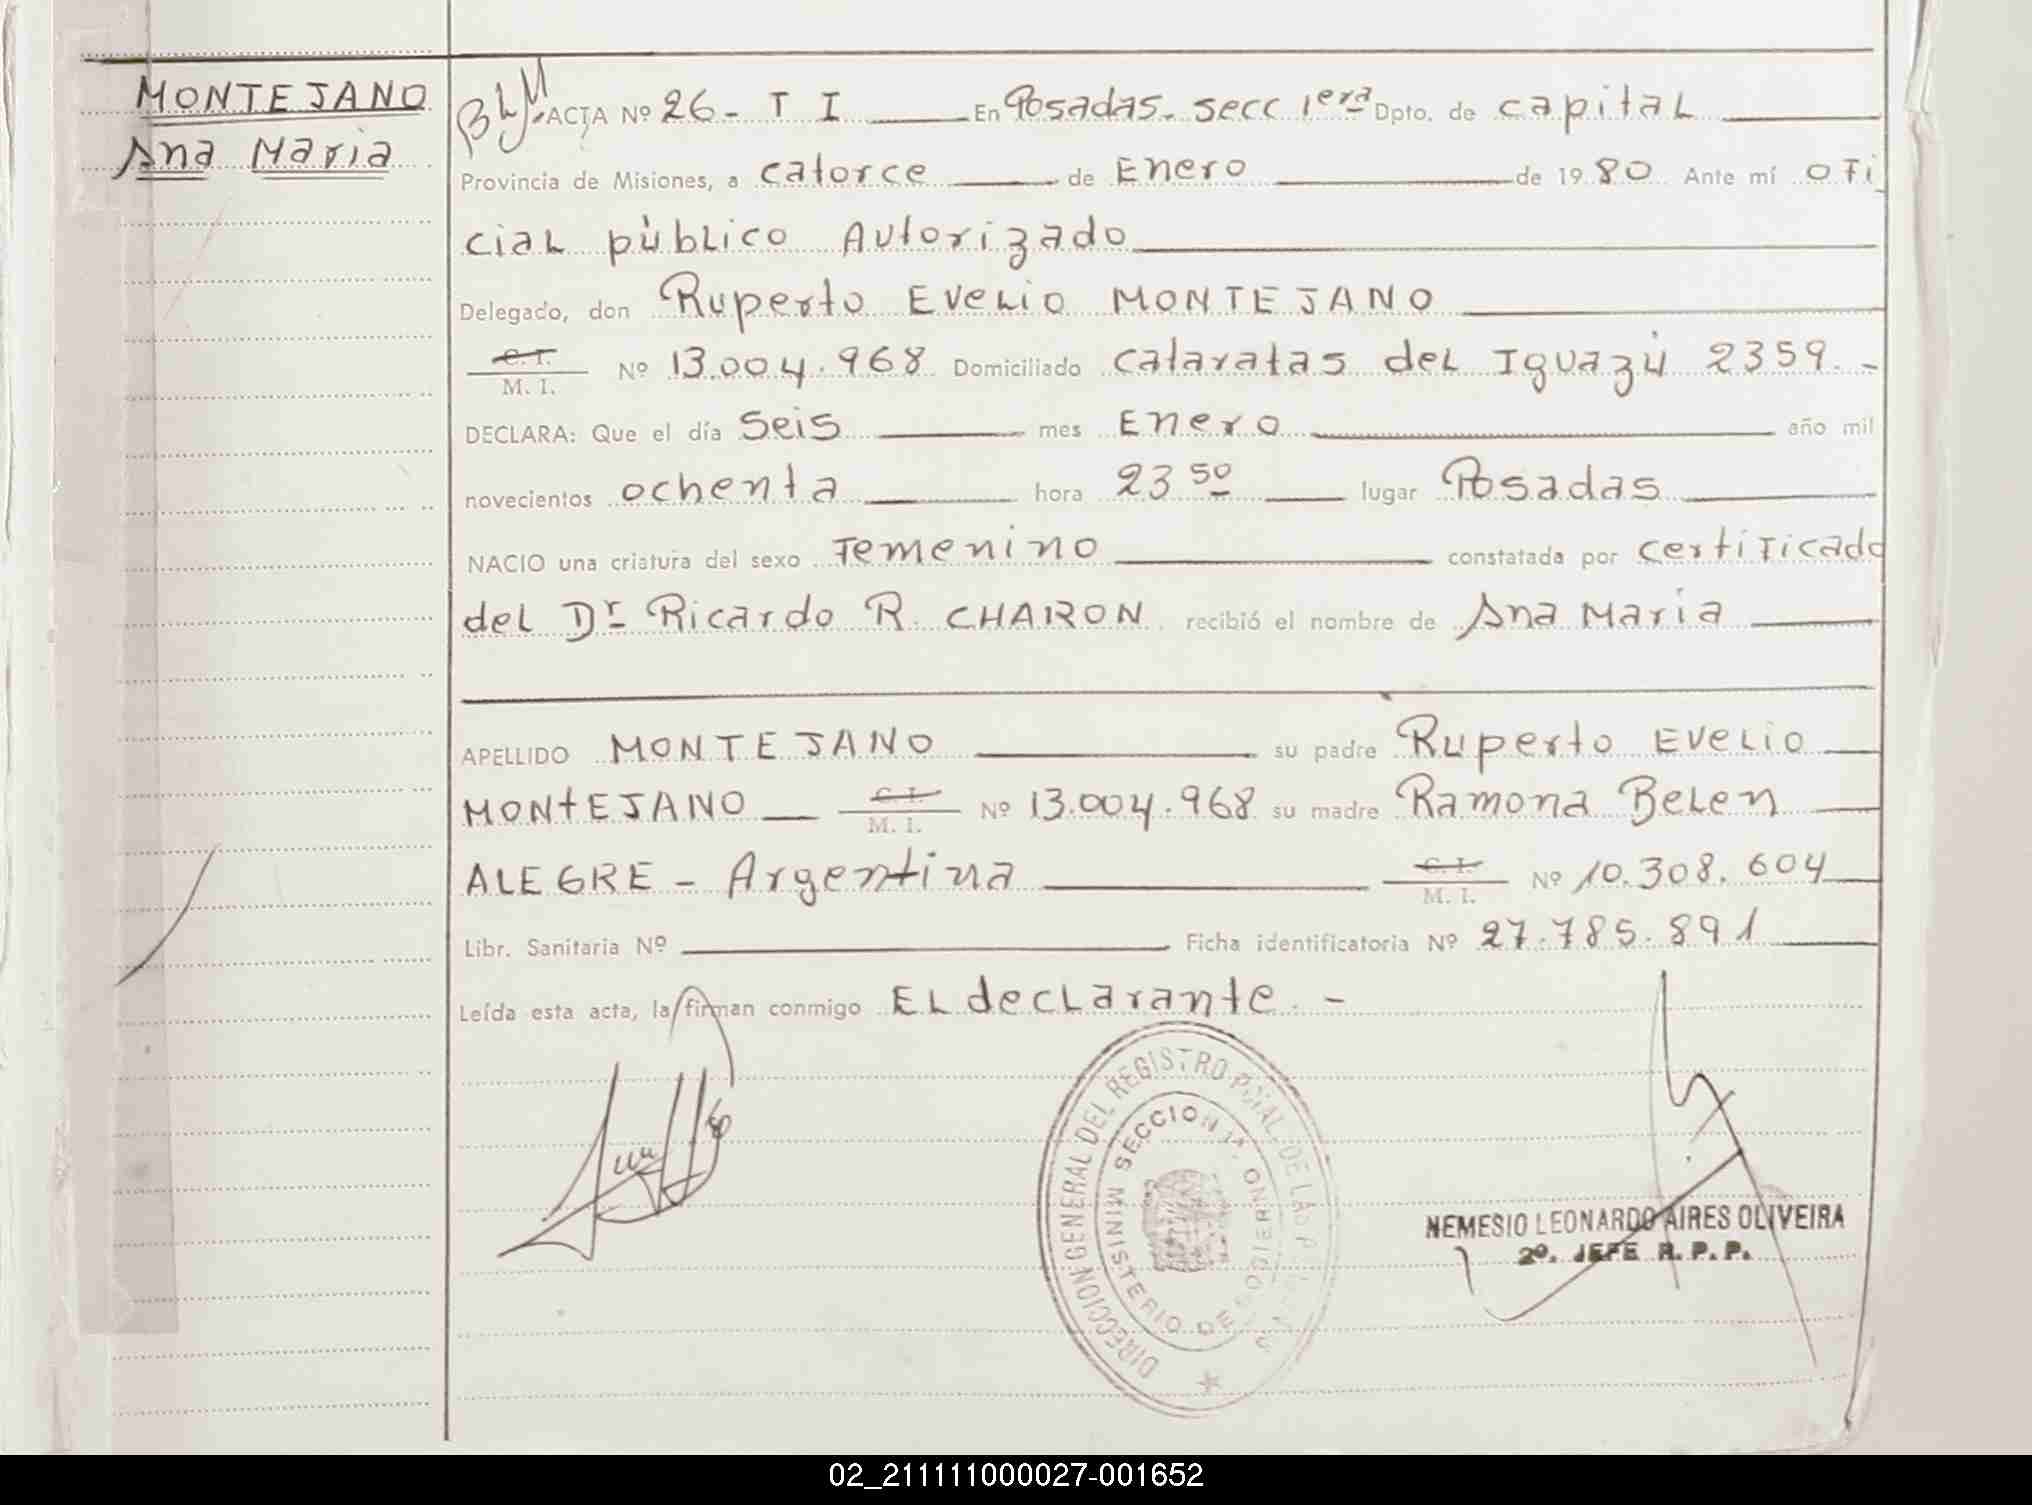 MONTEJANO
Ana Maria
ACTA Nº 26 - T I En Posadas. secc 1era Dpto. de capital
Provincia de Misiones, a catorce de Enero de 1980 Ante mí ofi
cial público Autorizado
Delegado, don Ruperto Evelio MONTEJANO
C. I. M. I. Nº 13.004.968 Domiciliado Cataratas del Iguazú 2359. -
DECLARA: Que el día seis mes Enero año mil
novecientos ochenta hora 23 50 lugar Posadas
NACIO una criatura del sexo femenino constatada por certificado
del Dr Ricardo R. CHARON recibió el nombre de Ana Maria
APELLIDO MONTEJANO su padre Ruperto Evelio
MONTEJANO C. I. M. I. Nº 13.004.968 su madre Ramona Belen
ALEGRE - Argentina C. I. M. I. Nº 10.308.604
Libr. Sanitaria Nº Ficha identificatoria Nº 27.785.891
Leída esta acta, la firman conmigo El declarante. -
DIRECCION GENERAL DEL REGISTRO DE LAS
SECCION 1ª. MINISTERIO DE GOBIERNO
NEMESIO LEONARDO AIRES OLIVEIRA
2º. JEFE R. P. P.
02_211111000027-001652